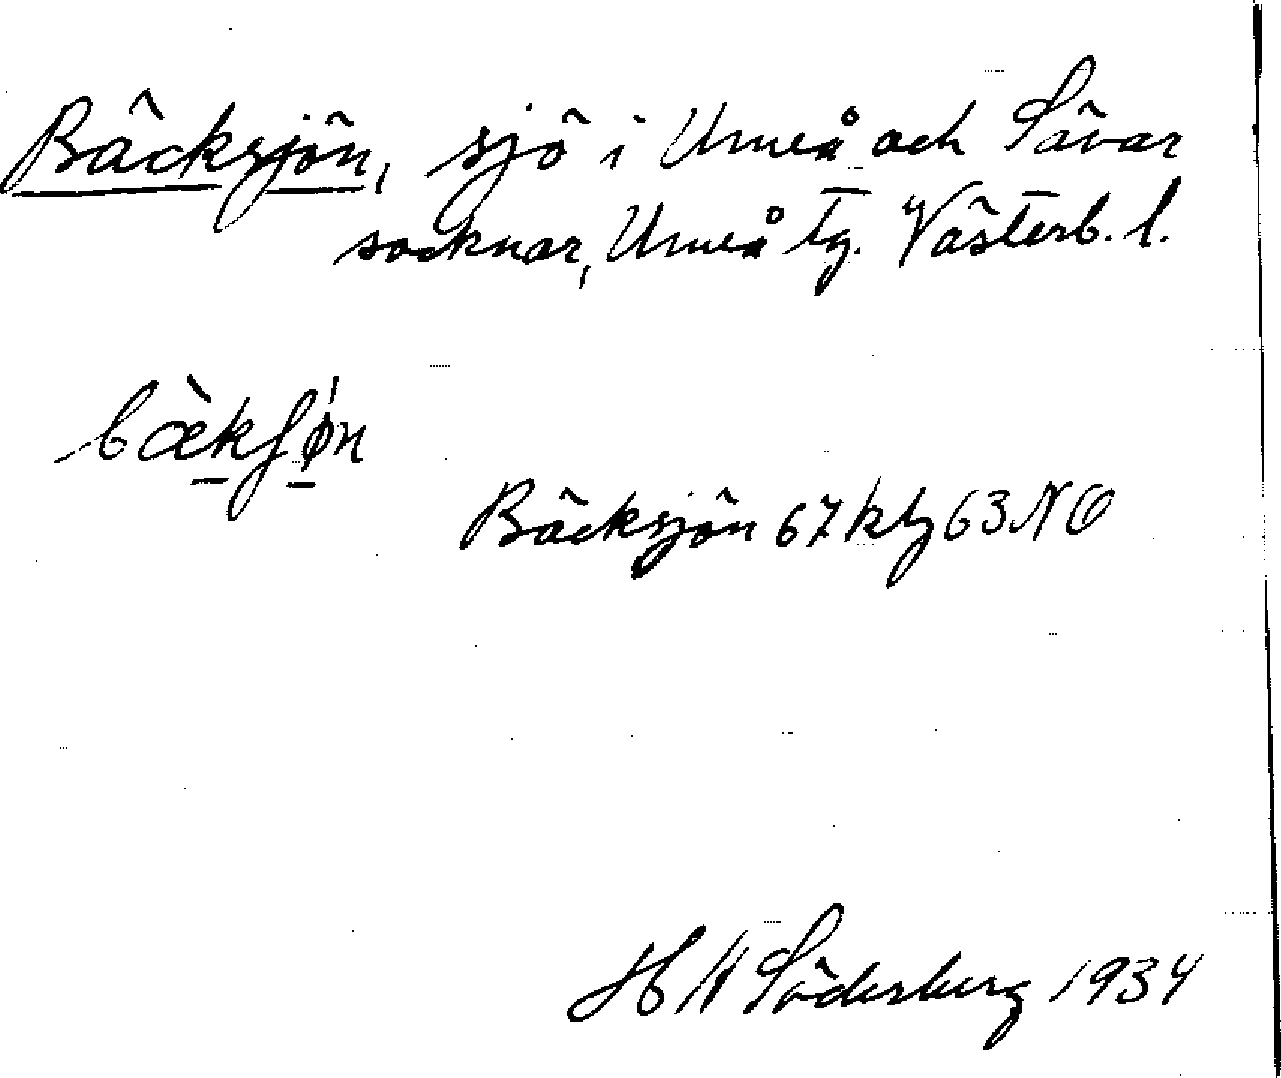 Bäcksjön, sjö i Umeå och Sävar
socknar, Umeå tg. Västerb. l.
bæ̀kʃø̍n
Bäcksjön 67 ktg 63 NO
H W Söderberg 1934